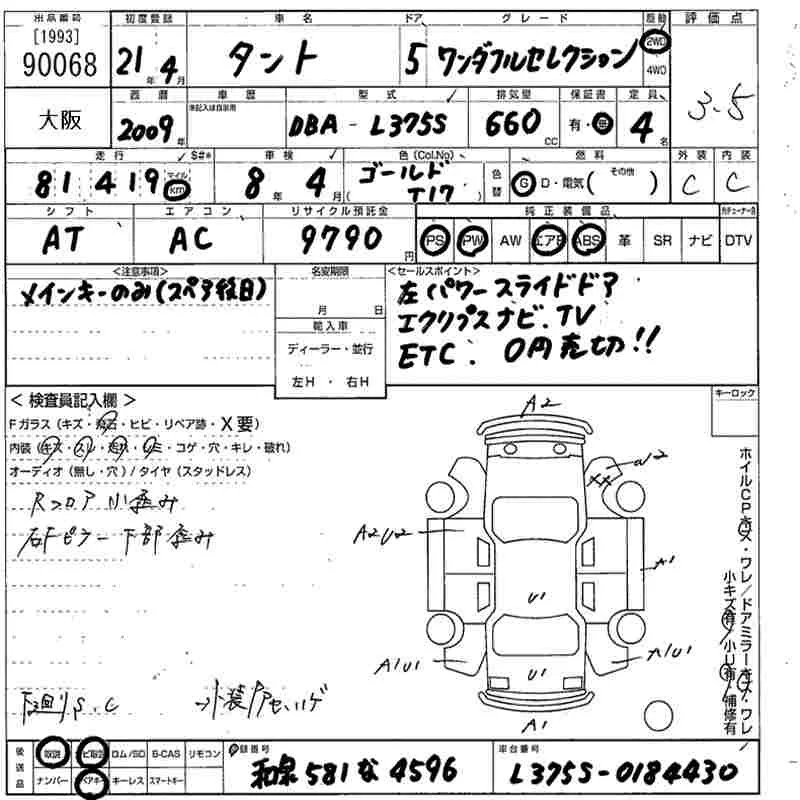 出品番号 初度登録 車名 ドア グレード 駆動 評価点
[1993]
90068 21年 4月 タント 5 ワンダフルセレクション 2WD 4WD 3.5
大阪 西暦 車歴 型式 排気量 保証書 定員
2009年 DBA-L375S 660cc 有・無 4名
走行 S#* 車検 色(Col.No) 色替 燃料 外装 内装
81419 マイル km 8年 4月 ゴールド T17 G D・電気( その他 ) C C
シフト エアコン リサイクル預託金 純正装備品
AT AC 9790円 PS PW AW エアB ABS 革 SR ナビ DTV
<注意事項> 名変期限 <セールスポイント>
メインキーのみ(スペア後日) 左パワースライドドア
月 日 エクリプスナビ.TV
輸入車 ETC. 0円売切!!
ディーラー・並行
左H・右H
<検査員記入欄> キーロック
Fガラス(キズ・飛石・ヒビ・リペア跡・X要)
内装(キズ・スレ・走穴・シミ・コゲ・穴・キレ・破れ)
オーディオ(無し・穴)/タイヤ(スタッドレス)
Rフロア 小歪み
右Fピラー下部歪み
A2
W2
XX
A2U2
A1
U1
A1U1
A1U1
U1
A1
下廻りS.C
ホイルCPキズ・ワレ/ドアミラーキズ・ワレ
小キズ有/小U有/補修有
後送品 取説 ナビ取説 ロム/SD B-CAS リモコン 登録番号 車台番号
ナンバー スペアキー キーレス スマートキー 和泉581な4596 L375S-0184430